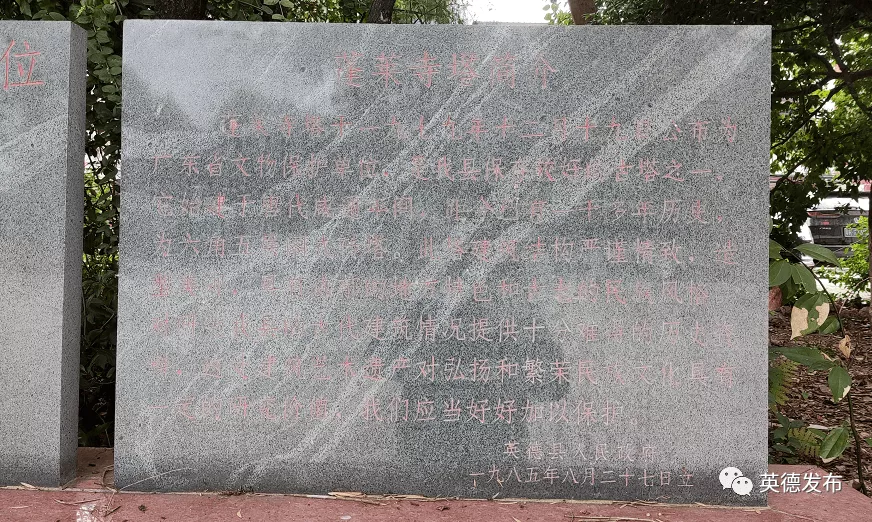 位
蓬莱寺塔简介
蓬莱寺塔于一九七九年十二月十九日公布为
广东省文物保护单位。是我县保存较好的古塔之一，
它始建于唐代咸通年间，距今已有一千多年历史。
为六角五层
此塔建筑结构严谨精致，造
地方特色和古老的民族风格
代建筑情况提供十分难得的历史
遗产对弘扬和繁荣民族文化具有
一定的研究价值。我们应当好好加以保护。
英德县人民政府
一九八五年八月二十七日立
英德发布